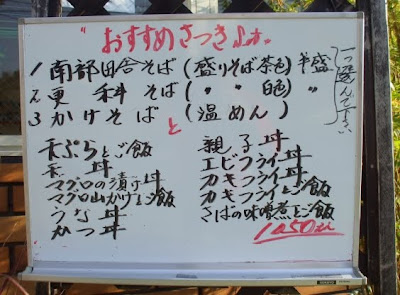 "おすすめさつき"です。
1 南部田舎そば (盛りそば茶色) 半盛
2 更 科 そば ( 〃 白色) 〃
3 かけそば (温めん)
一つ選んで下さい
と
天ぷらとご飯
天 丼
マグロの漬け丼
マグロ山かけとご飯
うな丼
かつ丼
親子丼
エビフライ丼
カキフライ丼
カキフライとご飯
さばの味噌煮とご飯
1050